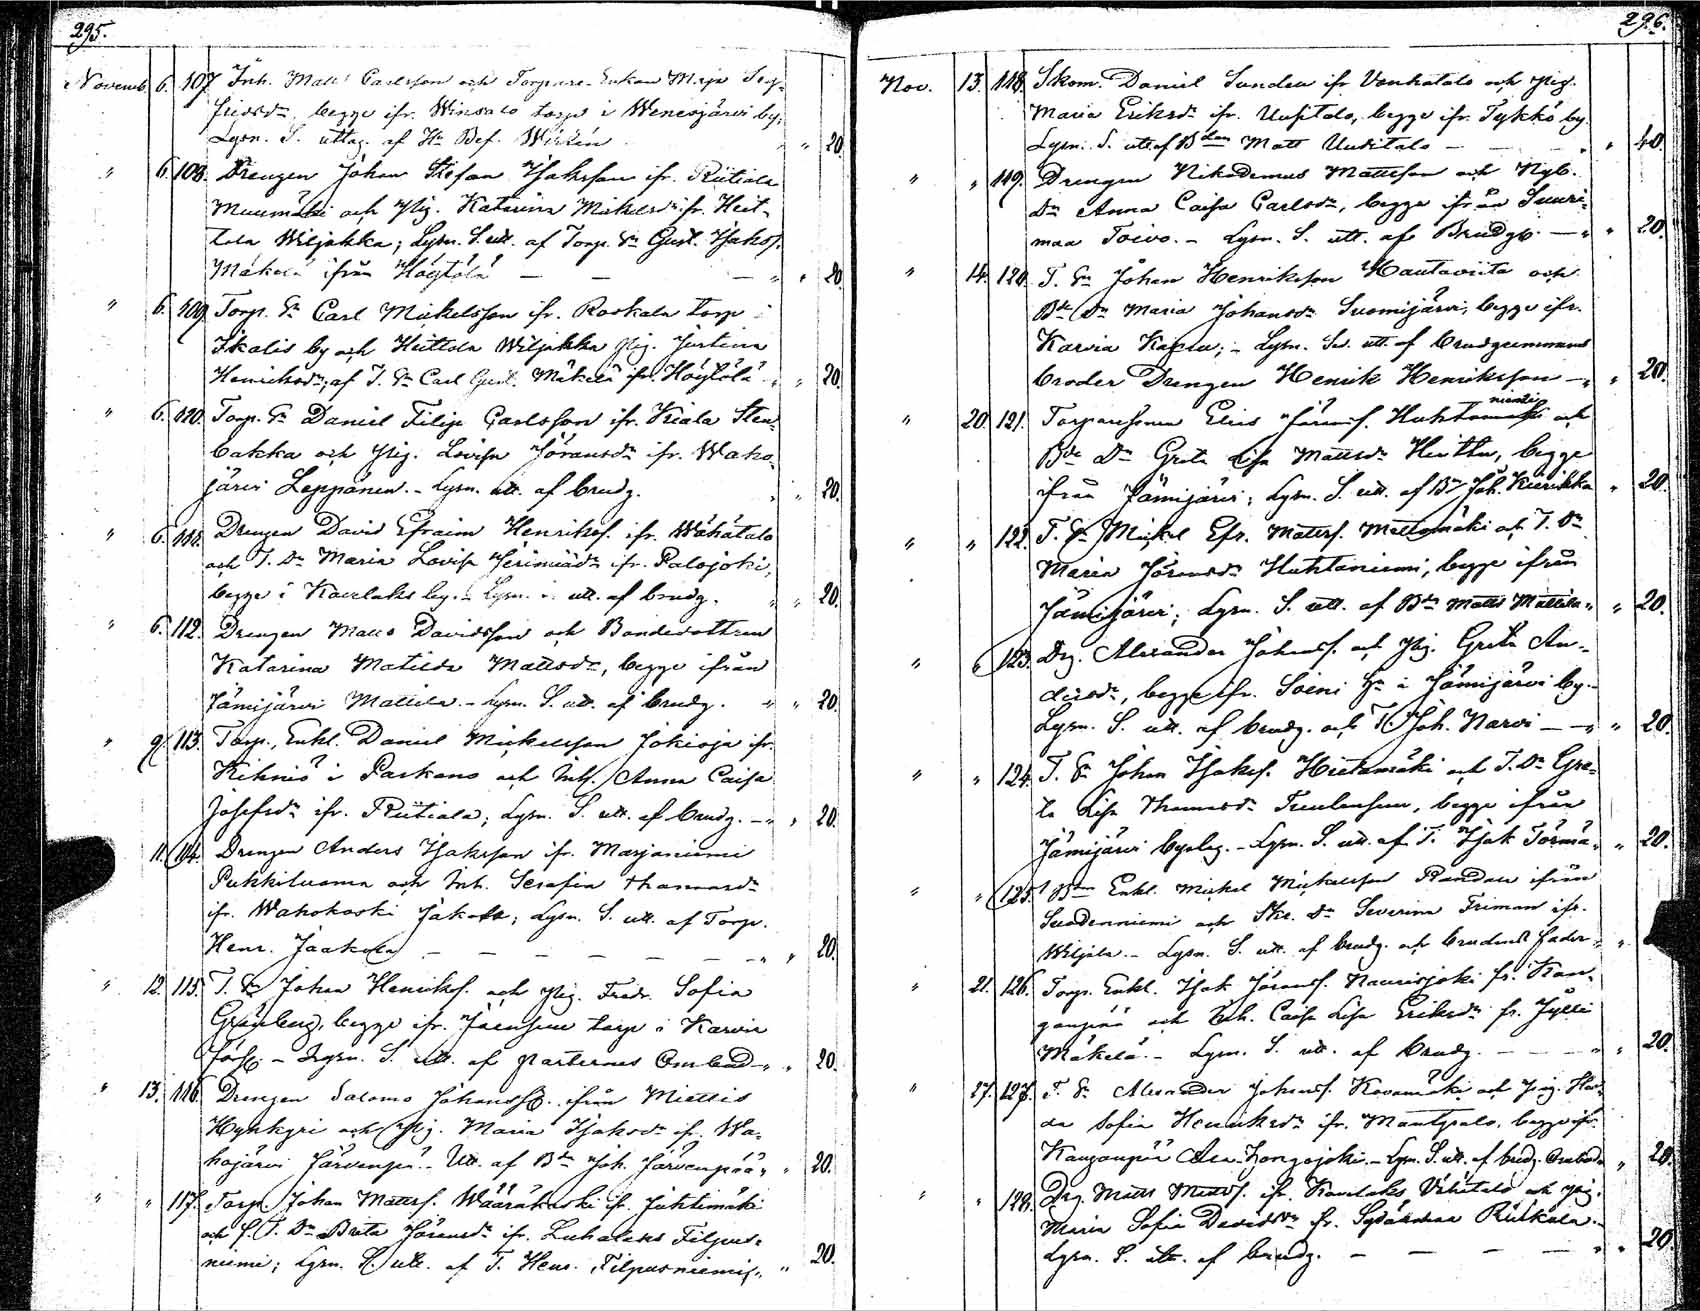 295.
Novemb. 6. 107 Inh. Matts Carlsson och Torpare Enkan Maja
begge ifr. Winsalo torp i Wenesjärvi by;
Lysn. S. uttag. af Hr Bef. Wirzén " " 20.
" 6. 108. Drengen Johan Stefan Isaksson ifr. Riitiala
Muumäki och Pig. Katarina Mikelsdr ifr. Heit-
tola Wiljakka; Lysn. S. utt. af Torp. Sn Gust. Isakss.
Mäkelä ifrån Höytölä — — — " " 20.
" 6. 109. Torp. Sn Carl Mickelsson ifr. Raskala torp i
Ikalis by och Heittola Wiljakka Pig. Justina
Henriksdr; af T. Sn Carl Gust. Mäkelä ifr. Höytölä " " 20.
" 6. 110. Torp. Sn Daniel Filip Carlsson ifr. Kiala Sten-
backa och Pig. Lovisa Jöransdr ifr. Waho-
järvi Leppänen. - Lysn. utt. af brudg. " " 20.
" 6. 111. Drengen David Efraim Henrikss. ifr. Wähätalo
och T. Dr Maria Lovisa Jerimiädr ifr. Palojoki,
begge i Kovelaks by. - Lysn. S. utt. af brudg. " " 20.
" 6. 112. Drengen Matts Davidsson och Bondedottren
Katarina Matilda Mattsdr, begge ifrån
Jämijärvi Mattila. - Lysn. S. utt. af brudg. " " 20.
" 9. 113. Torp. Enkl. Daniel Mickelsson Jokioja ifr.
Kihniö i Parkano och Inh. Anna Caisa
Josefsdr ifr. Riitiala; Lysn. S. utt. af brudg. - " " 20.
11. 114. Drengen Anders Isaksson ifr. Marjaniemi
Pukkiluoma och Inh. Serafia Thomasdr
ifr. Wahokoski Jakola; Lysn. S. utt. af Torp.
Henr. Jaakola — — — — — — " " 20.
" 12. 115. T. Sn Johan Henrikss. och Pig. Fredr. Sofia
Grönberg, begge ifr. Jäensuu torp i Karvia
- Lysn. S. utt. af parternas Ombud - " " 20.
" 13. 116. Drengen Salomo Johanss. ifrån Miettis
Hyhkyri och Pig. Maria Isaksdr ifr. Wa-
hojärvi Järvenpä. - Utt. af Bdn Joh. Järvenpää " " 20.
" " 117. Torp. Johan Mattss. Wääräkoski ifr. Juhtimäki
och T. Dr Brita Jöransdr ifr. Luhalaks Filpus-
niemi; Lysn. S. utt. af T. Henr. Filpusniemi " " 20.
296.
Nov. 13. 118. Skom. Daniel Sunden ifr Vanhatalo och Pig.
Maria Eriksdr ifr. Uusitalo, begge ifr. Tykkö by.
Lysn. S. utt. af Bdn Matt Uusitalo — — " " 40.
" " 119. Drengen Nikodemus Mattsson och Nyb.
Dr Anna Caisa Carlsdr, begge ifrån Suuri-
maa Toivo. - Lysn. S. utt. af Brudg. — " " 20.
" 14. 120. T. Sn Johan Henriksson Hautaviita och
Bde Dr Maria Johansdr Suomijärvi, begge ifr.
Karvia Kapla; - Lysn. Sed. utt. af brudgummens
broder Drengen Henrik Henriksson — " " 20.
" 20. 121. Torparesonen Elias Huhta-
niemi och
Bde Dr Greta Lisa Mattsdr Heittu, begge
ifrån Jämijärvi; Lysn. S. utt. af Bd Joh. Kierikka " 20.
" " 122. T. Sn Mickel Efr. Mattss. Mattomäki och T. Dr
Maria Jöransdr Huhtaniemi, begge ifrån
Jämijärvi; Lysn. S. utt. af Bdn Matts Mattila " " 20.
" " 123. Drg. Alexander Johanss. och Pig. Greta An-
dersdr, begge ifr. Soini Hn i Jämijärvi by. -
Lysn. S. utt. af brudg. och T. Joh. Narvi — " " 20.
" " 124. T. Sn Johan Isakss. Hietamäki och T. Dr Gre-
ta Lisa Thomasdr Tuulensuu, begge ifrån
Jämijärvi bolag. - Lysn. S. utt. af T. Isak Törmä " " 20.
" " 125. Bdn Enkl. Mickel Mickelsson Randala ifrån
Suodenniemi och Skr. Dr Severina Friman ifr.
Wiljala. - Lysn. S. utt. af brudg. och brudens fader "
" 21. 126. Torp. Enkl. Isak Jöranss. Naurisjoki fr. Kan-
ganpää och Inh. Caisa Lisa Eriksdr fr. Jylli
Mäkelä. - Lysn. S. utt. af brudg. — — — " " 20.
" 27. 127. T. Sn Alexander Johanss. Kovamäki och Pig. Hen-
da Sofia Henriksdr ifr. Mantysalo, begge ifr.
Kanganpää Ala-Hongojoki. - Lysn. S. utt. af brudg. Ombud " 20.
" " 128. Drg. Matts Mattss. ifr. Kovelaks Vähätalo och Pig.
Maria Sofia Davidsdr fr. Sydänmaa Riiskala. -
Lysn. S. utt. af brudg. — — — — " " 20.